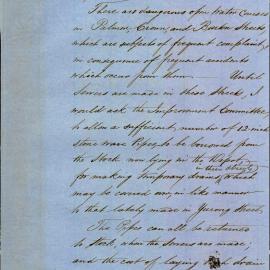 There are dangerous open water courses
in Palmer, Crown, and Burdin Streets
which are subjects of frequent complaint,
in consequence of frequent accidents
which occur from them. Until
Sewers are made in these Streets, I
would ask the Improvement Committee,
to allow a sufficient number of 12 inch
Stone ware Pipes to be borrowed from
the Stock now lying in the Depot,
in these streets
for making temporary drains, which
may be carried out, in like manner
to that lately made in Yurong Street.
The Pipes can all be returned
to Stock, when the Sewers are made;
and the cost of laying such drain